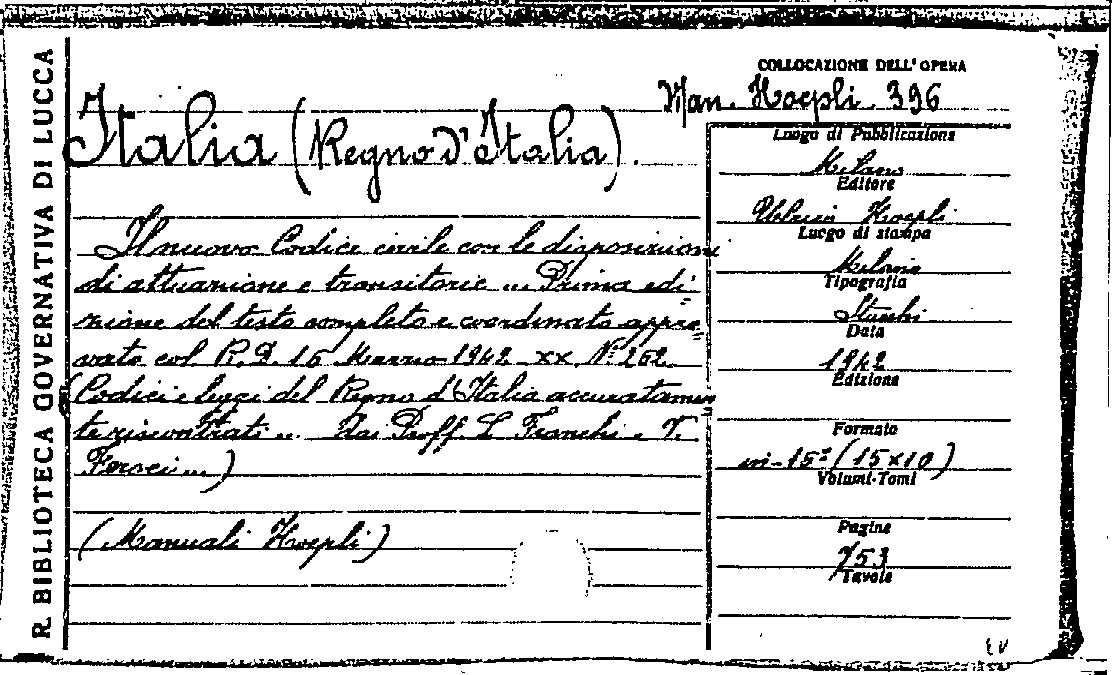 R. BIBLIOTECA GOVERNATIVA DI LUCCA
COLLOCAZIONE DELL'OPERA
Man. Hoepli 396
Italia (Regno d'Italia).
Il nuovo Codice civile con le disposizioni
di attuazione e transitorie ... Prima edi-
zione del testo completo e coordinato appro-
vato col R. D. 16 Marzo 1942 - XX N. 262.
(Codici e leggi del Regno d'Italia accuratamen
te riscontrati ... Dai Proff. L. Franchi e V.
Feroci ...)
(Manuali Hoepli)
Luogo di Pubblicazione
Milano
Editore
Ulrico Hoepli
Luogo di stampa
Milano
Tipografia
Stucchi
Data
1942
Edizione
Formato
in-15° (15x10)
Volumi-Tomi
Pagine
753
Tavole